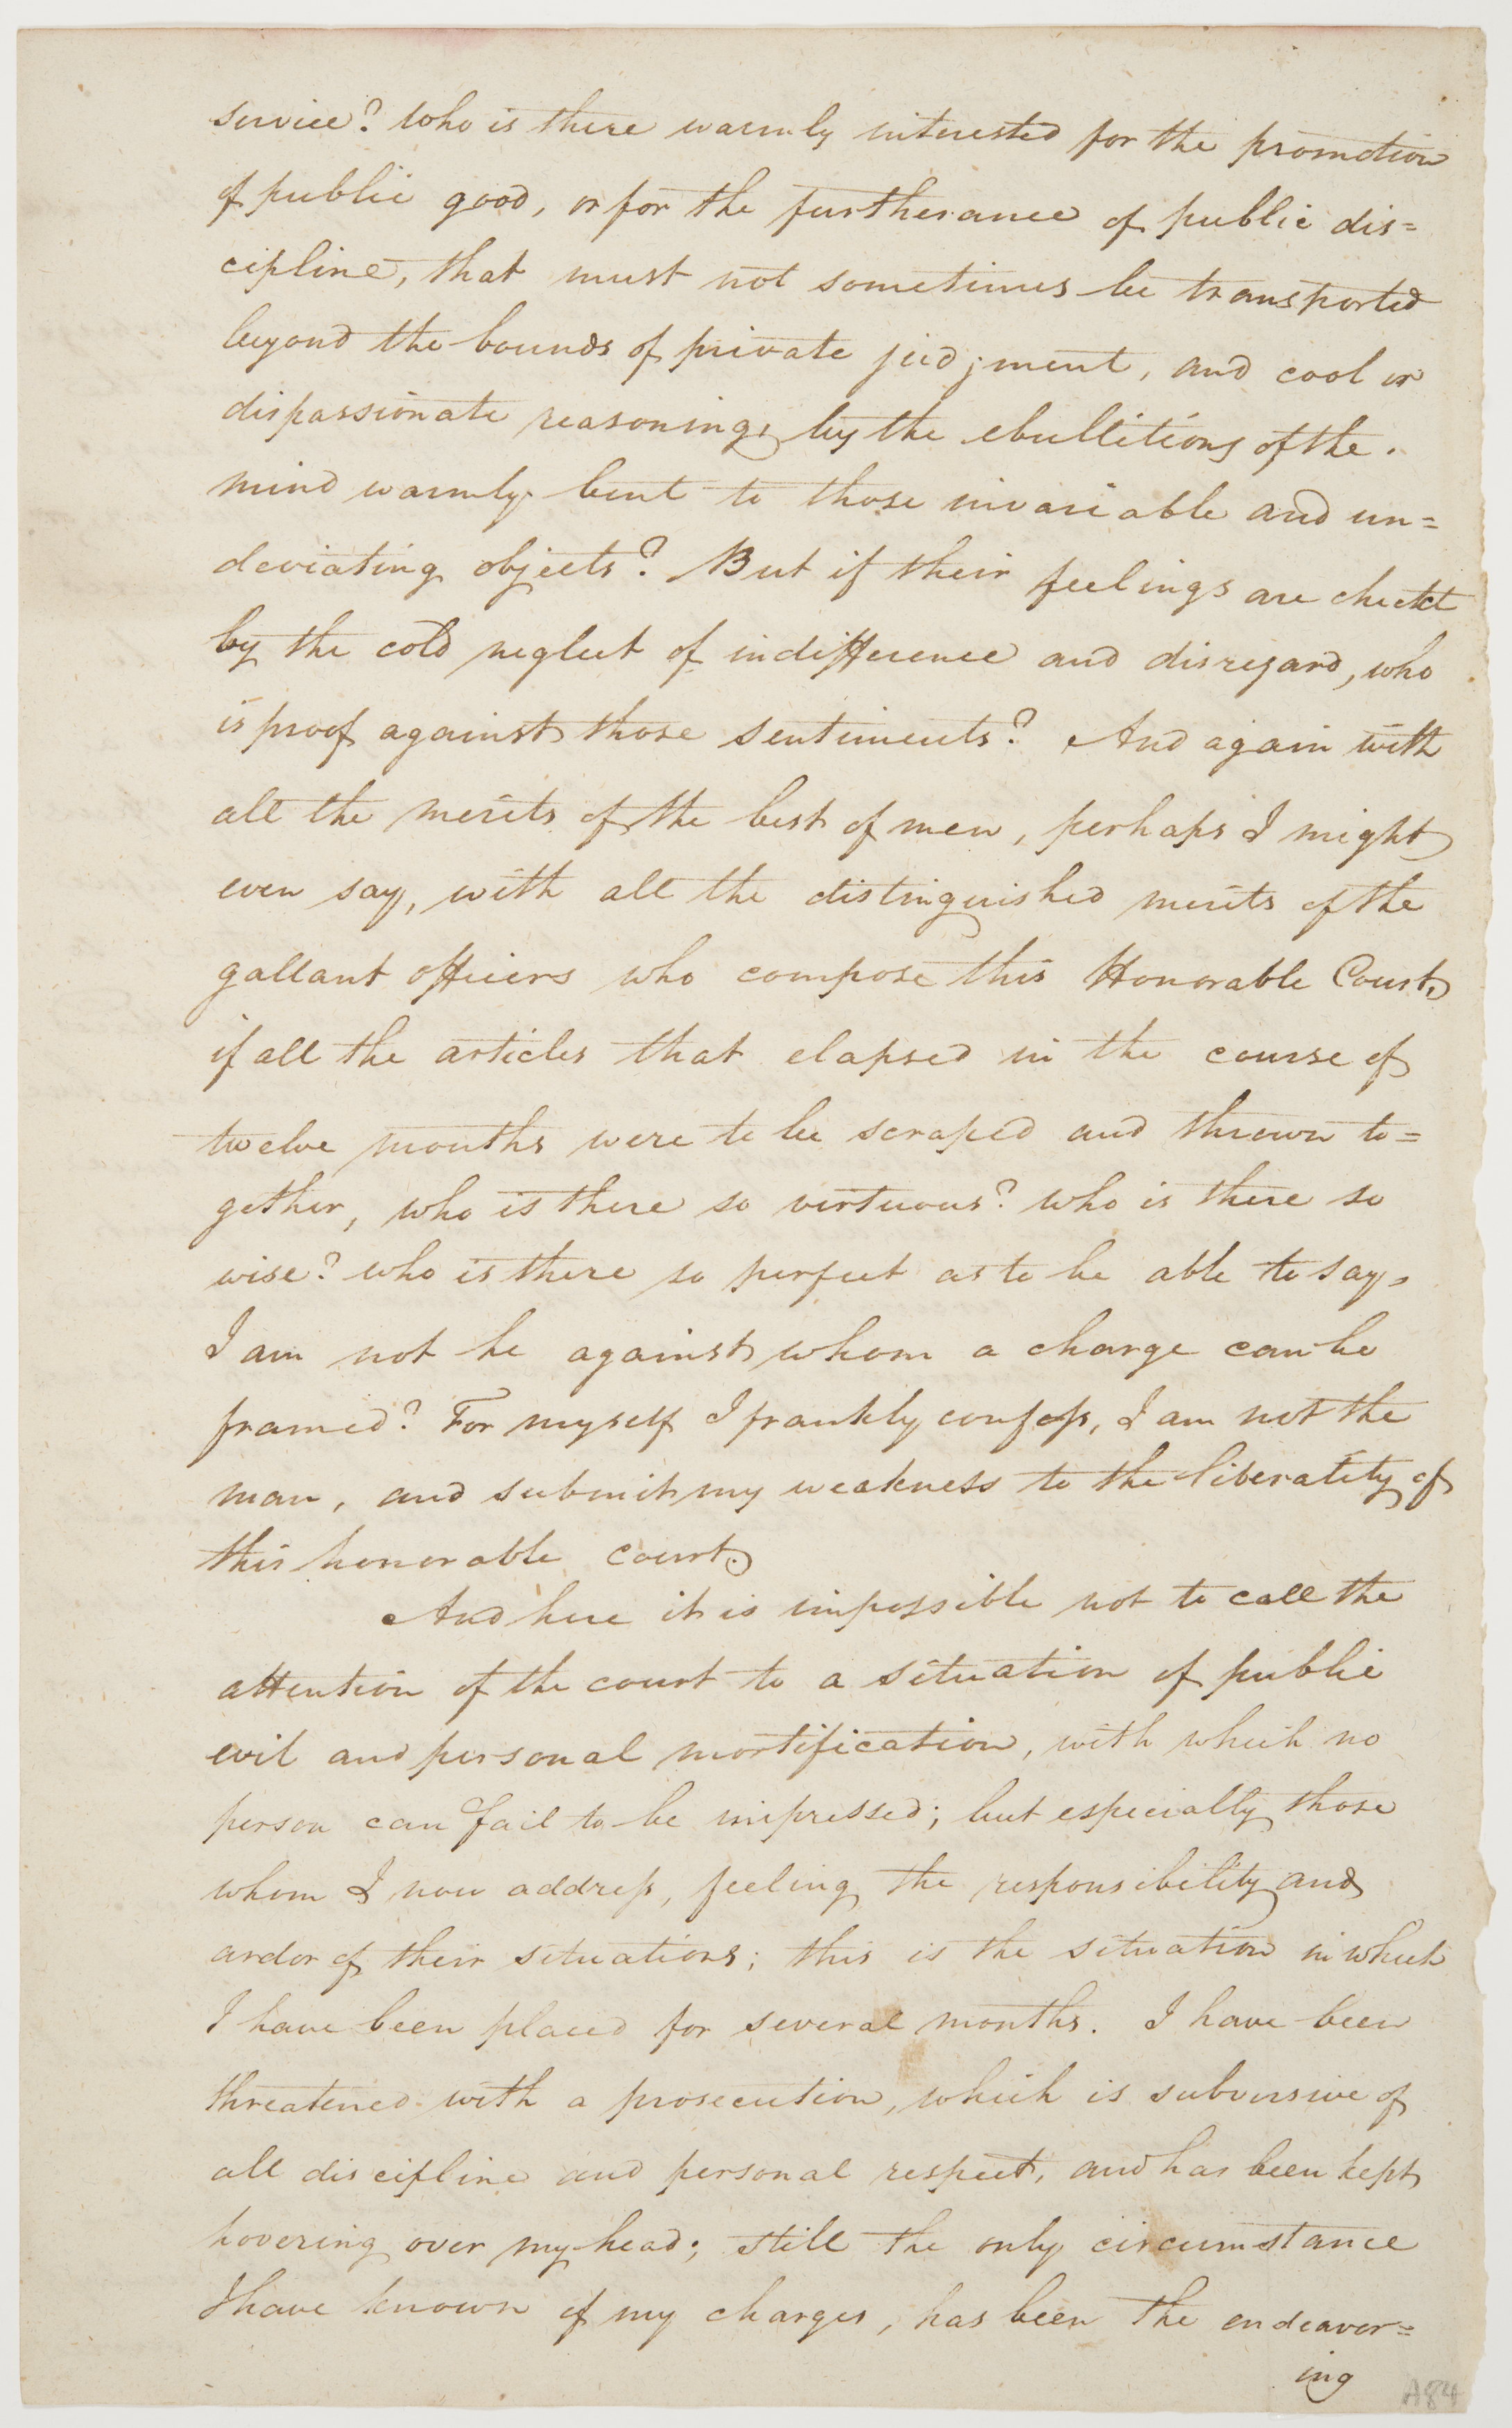 service? who is there warmly interested for the promotion
of public good, or for the furtherance of public dis=
cipline, that must not sometimes be transported
beyond the bounds of private judjment, and cool or
dispassionate reasoning, by the ebullitions of the.
mind warmly bent to those invariable and un=
deviating objects? But if their feelings are checkt
by the cold neglect of indifference and disregard, who
is proof against those sentiments? And again with
all the merits of the best of men, perhaps I might
even say, with all the distinguished merits of the
gallant officers who compose this Honorable Court,
if all the articles that elapsed in the course of
twelve months were to be scraped and thrown to=
gether, who is there so virtuous? who is there so
wise? who is there so perfect as to be able to say,
I am not he against whom a charge can be
framed? For myself I frankly confess, I am not the
man, and submit my weakness to the liberality of
this honorable court.
And here it is impossible not to call the
attention of the court to a situation of public
evil and personal mortification, with which no
person can fail to be impressed; but especially those
whom I now address, feeling the responsibility and
ardor of their situations; this is the situation in which
I have been placed for several months. I have been
threatened with a prosecution, which is subversive of
all discipline and personal respect, and has been kept
hovering over my head; still the only circumstance
I have known of my charges, has been the endeavor=
ing
A84